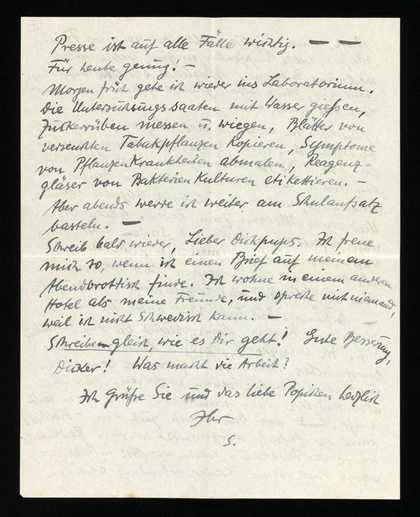 Presse ist auf alle Fälle wichtig. — —
Für heute genug! —
Morgen früh gehe ich wieder ins Laboratorium.
Die Untersuchungssaaten mit Wasser gießen,
Zuckerrüben messen u. wiegen, Blätter von
verseuchten Tabakpflanzen kopieren, Symptome
von Pflanzenkrankheiten abmalen, Reagenz-
gläser von Bakterienkulturen etikettieren. —
Aber abends werde ich weiter am Schulaufsatz
basteln. —
Schreib bald wieder, Lieber Ich freue
mich so, wenn ich einen Brief auf meinem
Abendbrottisch finde. Ich wohne in einem anderen
Hotel als meine Freunde, und spreche mit niemand,
weil ich nicht Schwedisch kann. —
Schreiben gleich, wie es Dir geht! Gute Besserung,
Dicker! Was macht die Arbeit?
Ich grüße Sie und das liebe herzlich
Ihr
S.